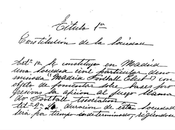 Título 1º
Constitución de la Sociedad
Artº 1º Se constituye en Madrid
una sociedad civil particular deno-
minada "Madrid Football Club" con
objeto de fomentar sobre bases
la afición al juego llamado
de Football Association
Artº 2º La duración de esta Sociedad
será por tiempo indeterminado,